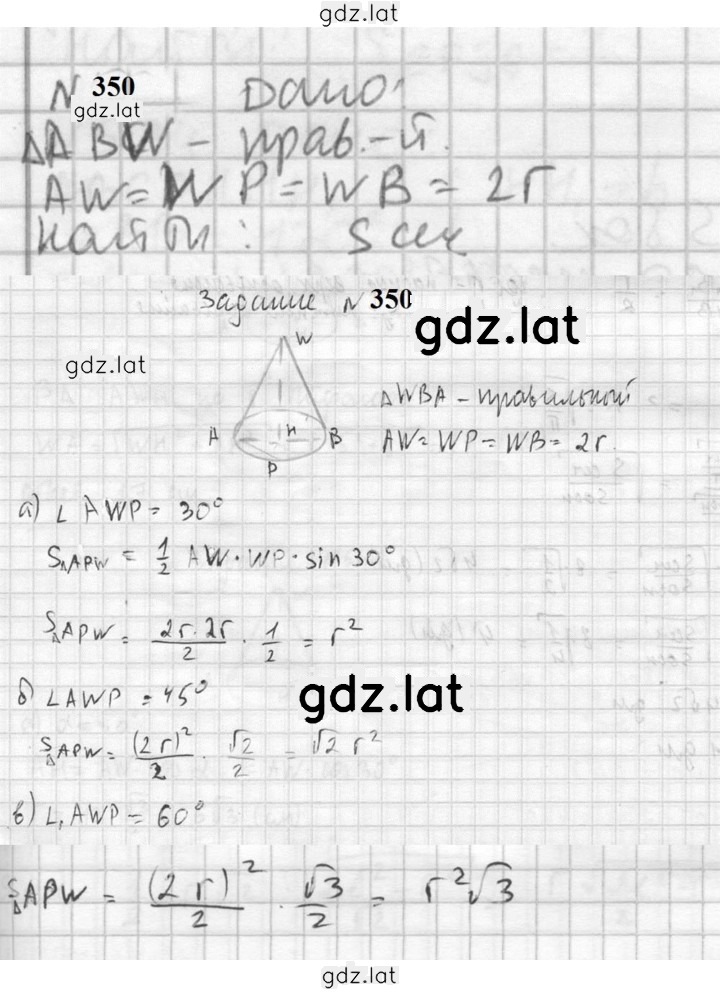 gdz.lat
N 350 Дано:
gdz.lat
△ABW - прав.-й.
AW = WP = WB = 2r
Найти: S сеч
Задание N 350
gdz.lat
gdz.lat
W
A
H
B
P
△WBA - правильной
AW = WP = WB = 2r.
а) ∠ AWP = 30°
S△APW = 1/2 AW · WP · sin 30°
S△APW = 2r · 2r/2 · 1/2 = r²
б) ∠AWP = 45°
gdz.lat
S△APW = (2r)²/2 · √2/2 = √2 r²
в) ∠, AWP = 60°
S△APW = (2r)²/2 · √3/2 = r²√3
gdz.lat